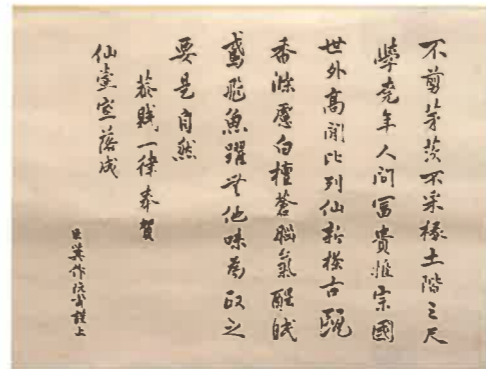 不剪茅茨不采椽土階三尺
學堯年人间冨貴推宗國
世外高閒比列仙新搽古甌
香滌慮白檀蒼腦氣醒眠
鳶飛魚躍無他味為政之
要是自然
恭賦一律奉賀
仙臺室落成
臣謹上